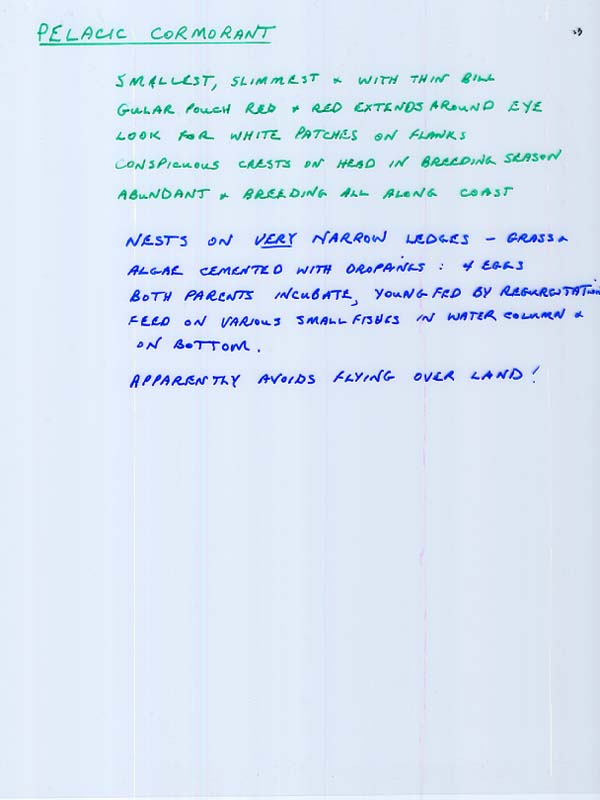 PELAGIC CORMORANT
SMALLEST, SLIMMEST & WITH THIN BILL
GULAR POUCH RED & RED EXTENDS AROUND EYE
LOOK FOR WHITE PATCHES ON FLANKS
CONSPICUOUS CRESTS ON HEAD IN BREEDING SEASON
ABUNDANT & BREEDING ALL ALONG COAST
NESTS ON VERY NARROW LEDGES – GRASS &
ALGAE CEMENTED WITH DROPPINGS : 4 EGGS
BOTH PARENTS INCUBATE, YOUNG FED BY REGURGTATION
FEED ON VARIOUS SMALL FISHES IN WATER COLUMN &
ON BOTTOM.
APPARENTLY AVOIDS FLYING OVER LAND!